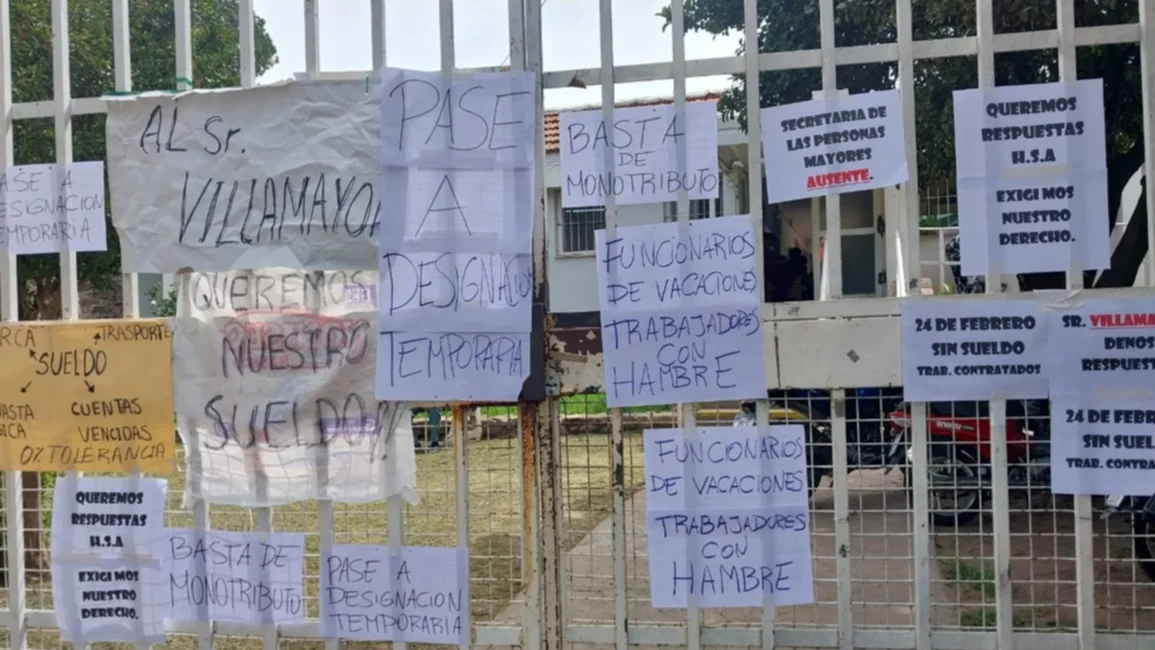 AL Sr.
VILLAMAYOR
QUEREMOS
NUESTRO
SUELDO!!
PASE
A
DESIGNACION
TEMPORARIA
BASTA
DE
MONOTRIBUTO
SECRETARIA DE
LAS PERSONAS
MAYORES
AUSENTE.
QUEREMOS
RESPUESTAS
H.S.A
EXIGIMOS
NUESTRO
DERECHO.
ASE A
ESIGNACION
EMPORARIA
RCA TRASPORTE
SUELDO
CUENTAS
VENCIDAS
0% TOLERANCIA
FUNCIONARIOS
DE VACACIONES
TRABAJADORES
CON
HAMBRE
24 DE FEBRERO
SIN SUELDO
TRAB. CONTRATADOS
SR. VILLAMA
DENOS
RESPUEST
24 DE FEBR
SIN SUEL
TRAB. CONTRA
QUEREMOS
RESPUESTAS
H.S.A
EXIGIMOS
NUESTRO
DERECHO.
BASTA DE
MONOTRIBUTO
PASE A
DESIGNACION
TEMPORARIA
FUNCIONARIOS
DE VACACIONES
TRABAJADORES
CON
HAMBRE